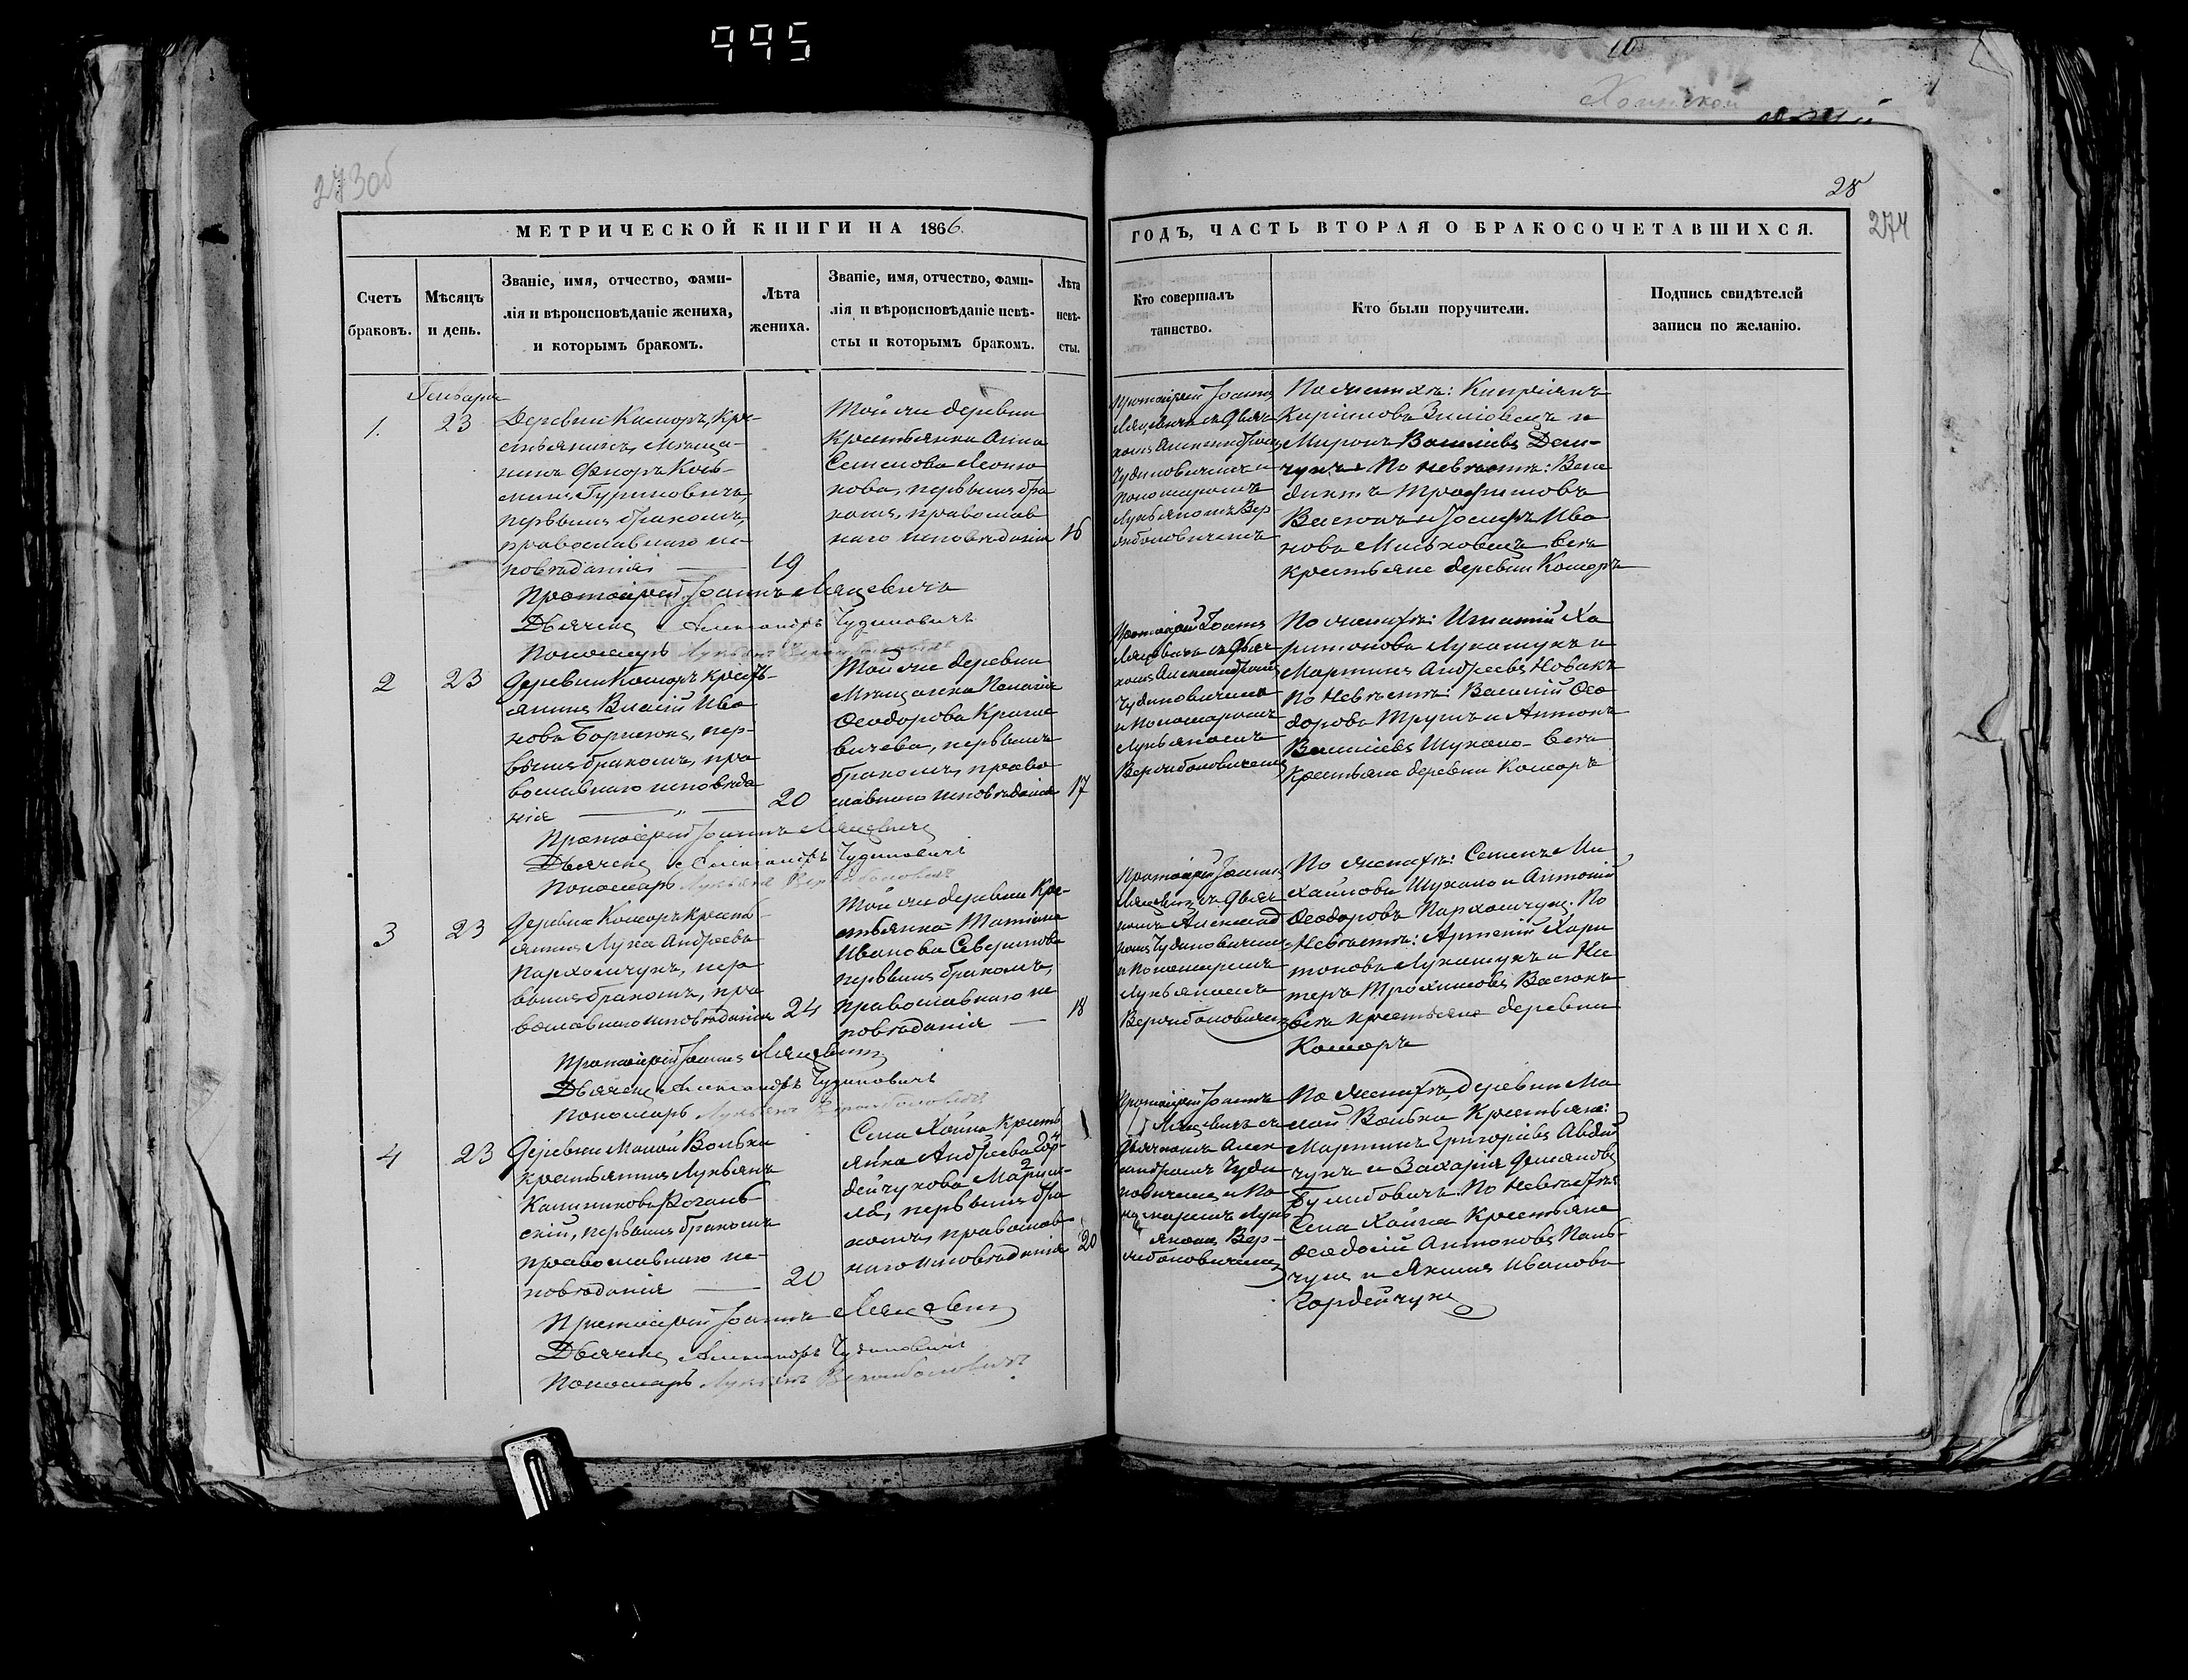 995
Хоинской
273об
28
274
МЕТРИЧЕСКОЙ КНИГИ НА 1866
ГОДЪ, ЧАСТЬ ВТОРАЯ О БРАКОСОЧЕТАВШИХСЯ.
Счетъ
браковъ.
Мѣсяцъ
и день.
Званіе, имя, отчество, фами-
лія и вѣроисповѣданіе жениха,
и которымъ бракомъ.
Лѣта
жениха.
Званіе, имя, отчество, фами-
лія и вѣроисповѣданіе невѣ-
сты и которымъ бракомъ.
Лѣта
невѣ-
сты.
Кто совершалъ
таинство.
Кто были поручители.
Подпись свидѣтелей
записи по желанію.
Генваря
1.
23
Деревни Коморъ, кре-
стьянинъ
Гуриновичъ
первымъ бракомъ,
православнаго ис-
повѣданія
19
Той же деревни
крестьянка Анна
Семенова
первымъ бра
комъ, православ
наго исповѣданія
16
Протоіерей Іоаннъ
Ляцевичъ съ Дьяч
комъ Александромъ
Чудиновичемъ и
Пономаремъ
Лукьяномъ Вер
По женихѣ: Кипріянъ
и
Миронъ Васильевъ Дем-
чукъ. По невѣстѣ: Вене
диктъ Трофимовъ
Васюкъ и Іосифъ Ива
новъ вси
крестьяне деревни Коморъ
Протоіерей Іоаннъ Ляцевичъ
Дьячекъ Александръ Чудиновичъ
Пономарь Лукьянъ
2
23
Деревни Коморъ крестъ-
янинъ Власій Ива
новъ Борисюкъ, пер-
вымъ бракомъ, пра
вославнаго исповѣда
нія
20
Той же деревни
Мѣщанка Пелагія
Ѳеодорова
первымъ
бракомъ, право
славнаго исповѣданія
17
Протоіерей Іоаннъ
Ляцевичъ съ Дьяч
комъ Александромъ
Чудиновичемъ
и Пономаремъ
Лукьяномъ
По женихѣ: Игнатій Ха
ритоновъ Лукашукъ и
Мартинъ Андреевъ Новакъ
По невѣстѣ: Василій Ѳео
доровъ и Антонъ
Васильевъ Шукало вси
крестьяне деревни Коморъ
Протоіерей Іоаннъ Ляцевичъ
Дьячекъ Александръ Чудиновичъ
Пономарь Лукьянъ
3
23
Деревни Коморъ крестъ-
янинъ Лука Андреевъ
Пархомчукъ, пер
вымъ бракомъ, пра
вославнаго исповѣданія
24
Той же деревни кре-
стьянка Татіана
Иванова Северинова
первымъ бракомъ,
православнаго ис
повѣданія
18
Протоіерей Іоаннъ
Ляцевичъ съ Дьяч
комъ Александ
Чудиновичемъ
и Пономаремъ
Лукьяномъ
По женихѣ: Семенъ Ми
хайловъ Шукало и Антоній
Ѳеодоровъ Пархомчукъ. По
невѣстѣ: Артемій Хари
тоновъ Лукашукъ и Пе
теръ Трохимовъ Васюкъ
вси крестьяне деревни
Коморъ
Протоіерей Іоаннъ Ляцевичъ
Дьячекъ Александръ Чудиновичъ
Пономарь Лукьянъ
4
23
Деревни Малой Вольки
крестьянинъ Лукьянъ
Калиниковъ Рогаль
скій, первымъ бракомъ
православнаго ис-
повѣданія
20
Села Хойна крестъ
янка Андреева Гор-
дейчукова
первымъ бра
комъ, православ
наго исповѣданія
20
Протоіерей Іоаннъ
Ляцевичъ съ
Дьячкомъ Алек
сандромъ Чуди
новичемъ и По
номаремъ Лукь
яномъ Вер-
По женихѣ, деревни Ма
лой Вольки крестьяне:
Мартинъ Григоріевъ Авдій
чукъ и Захарія Демяновъ
По невѣстѣ:
Села Хойна крестьяне
Ѳеодосій Антоновъ Паль-
чукъ и Якимъ Ивановъ
Гордейчукъ
Протоіерей Іоаннъ Ляцевичъ
Дьячекъ Александръ Чудиновичъ
Пономарь Лукьянъ